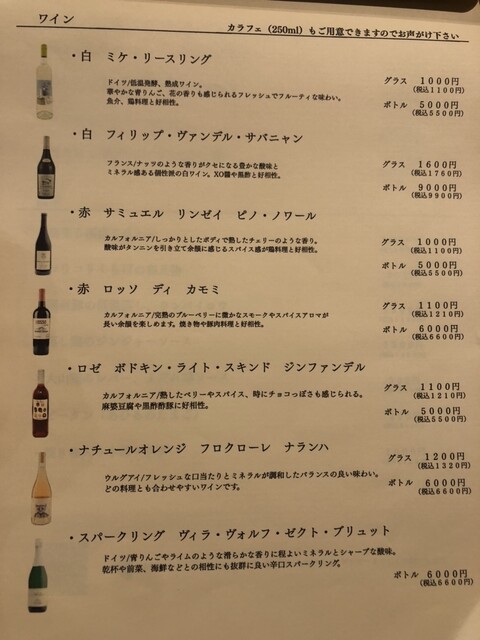 ワイン
カラフェ（250ml）もご用意できますのでお声がけ下さい
・白　ミケ・リースリング
ドイツ/低温発酵、熟成ワイン。
華やかな青りんご、花の香りも感じられるフレッシュでフルーティな味わい。
魚介、鶏料理と好相性。
グラス　1000円
（税込1100円）
ボトル　5000円
（税込5500円）
・白　フィリップ・ヴァンデル・サバニャン
フランス/ナッツのような香りがクセになる豊かな酸味と
ミネラル感ある個性派の白ワイン。XO醤や黒酢と好相性。
グラス　1600円
（税込1760円）
ボトル　9000円
（税込9900円）
・赤　サミュエル　リンゼイ　ピノ・ノワール
カルフォルニア/しっかりとしたボディで熟したチェリーのような香り。
酸味がタンニンを引き立て余韻に感じるスパイス感が鶏料理と好相性。
グラス　1000円
（税込1100円）
ボトル　5000円
（税込5500円）
・赤　ロッソ　ディ　カモミ
カルフォルニア/完熟のブルーベリーに微かなスモークやスパイスアロマが
長い余韻を楽しめます。焼き物や豚肉料理と好相性。
グラス　1100円
（税込1210円）
ボトル　6000円
（税込6600円）
・ロゼ　ボドキン・ライト・スキンド　ジンファンデル
カルフォルニア/熟したベリーやスパイス、時にチョコっぽさも感じられる。
麻婆豆腐や黒酢酢豚に好相性。
グラス　1100円
（税込1210円）
ボトル　5000円
（税込5500円）
・ナチュールオレンジ　フロクローレ　ナランハ
ウルグアイ/フレッシュな口当たりとミネラルが調和したバランスの良い味わい。
どの料理とも合わせやすいワインです。
グラス　1200円
（税込1320円）
ボトル　6000円
（税込6600円）
・スパークリング　ヴィラ・ヴォルフ・ゼクト・ブリュット
ドイツ/青りんごやライムのような滑らかな香りに程よいミネラルとシャープな酸味。
乾杯や前菜、海鮮などとの相性にも抜群に良い辛口スパークリング。
ボトル　6000円
（税込6600円）